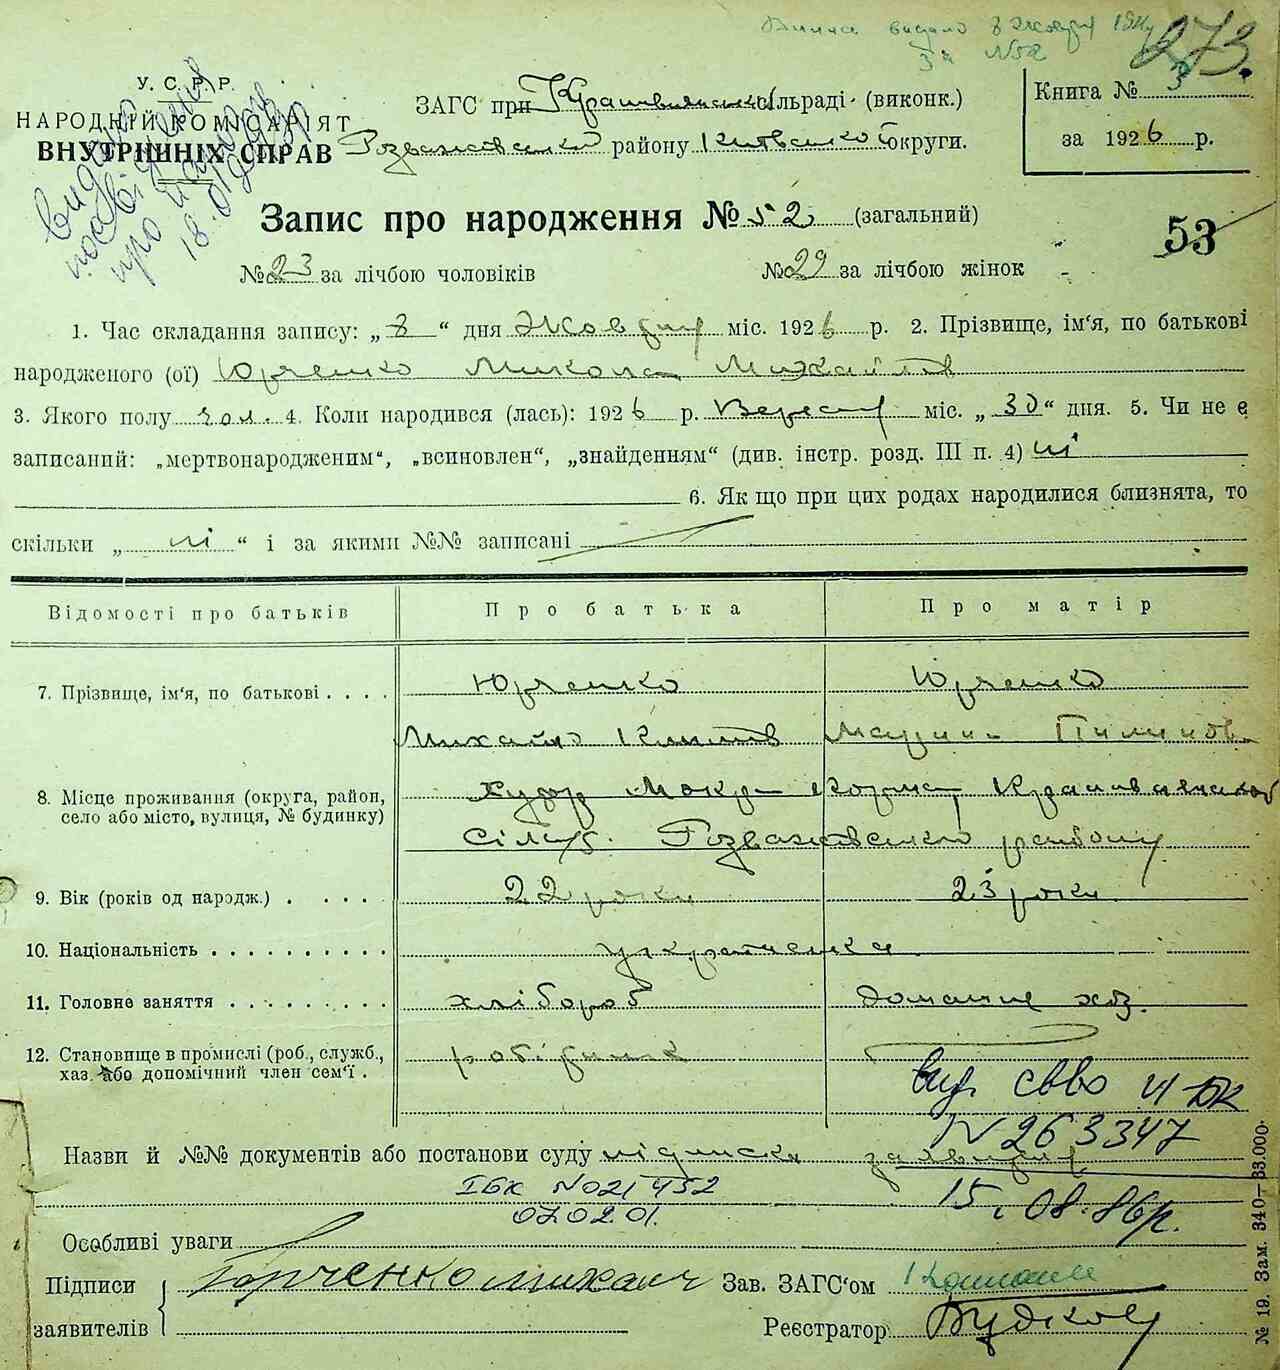 273.
У. С. Р. Р.
НАРОДНІЙ КОМІСАРІЯТ
ВНУТРІШНІХ СПРАВ
ЗАГС при сільраді (виконк.)
Розважівського району Київської округи.
Книга № 3
за 1926 р.
Запис про народження № 52 (загальний)
53
№ 23 за лічбою чоловіків № 29 за лічбою жінок
1. Час складання запису: „ 8 “ дня Жовтня міс. 1926 р. 2. Прізвище, ім'я, по батькові
народженого (ої) Юрченко Микола Михайлів
3. Якого полу чол. 4. Коли народився (лась): 1926 р. Вересня міс. „ 30 “ дня. 5. Чи не є
записаний: „мертвонародженим“, „всиновлен“, „знайденням“ (див. інстр. розд. III п. 4) ні
6. Як що при цих родах народилися близнята, то
скільки „ ні “ і за якими №№ записані
Відомості про батьків Про батька Про матір
7. Прізвище, ім'я, по батькові . . . . Юрченко Юрченко
Михайло
8. Місце проживання (округа, район, хутор
село або місто, вулиця, № будинку) Розважівського району
9. Вік (років од народж.) . . . . . 22 роки 23 роки
10. Національність . . . . . . . . . . українська
11. Головне заняття . . . . . . . . . хлібороб домашнє хоз.
12. Становище в промислі (роб., служб., робітник
хаз. або допомічний член сем'ї .
вид. свво
N 263347
Назви й №№ документів або постанови суду підписка заявителя
ІБК №021452
15.08.86р.
07.02.01.
Особливі уваги
Підписи Юрченко Михайло Зав. ЗАГС'ом
заявителів Реєстратор
№ 19. Зам. 340—33.000.